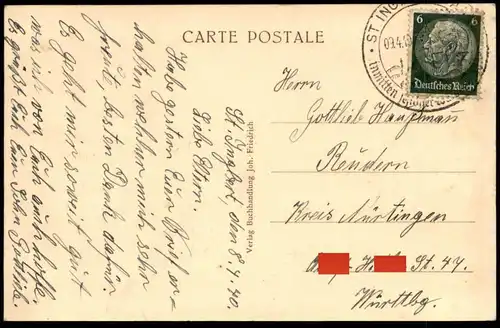 CARTE POSTALE
St. Ingbert, den 8. 4. 40.
Liebe Eltern.
Habe gestern Euer Brief er-
halten welcher mich sehr
freut, besten Dank dafür
Es geht mir soweit gut
was ich von Euch auch hoffe.
Es grüßt Euch Euer Sohn Gottlieb.
Verlag Buchhandlung Joh. Friedrich
ST. ING
09.4.40
inmitten schöner
6 6
Deutsches Reich
Herrn
Gottlieb Hauptman
Reudern
Kreis Nürtingen
St. 47.
Württbg.